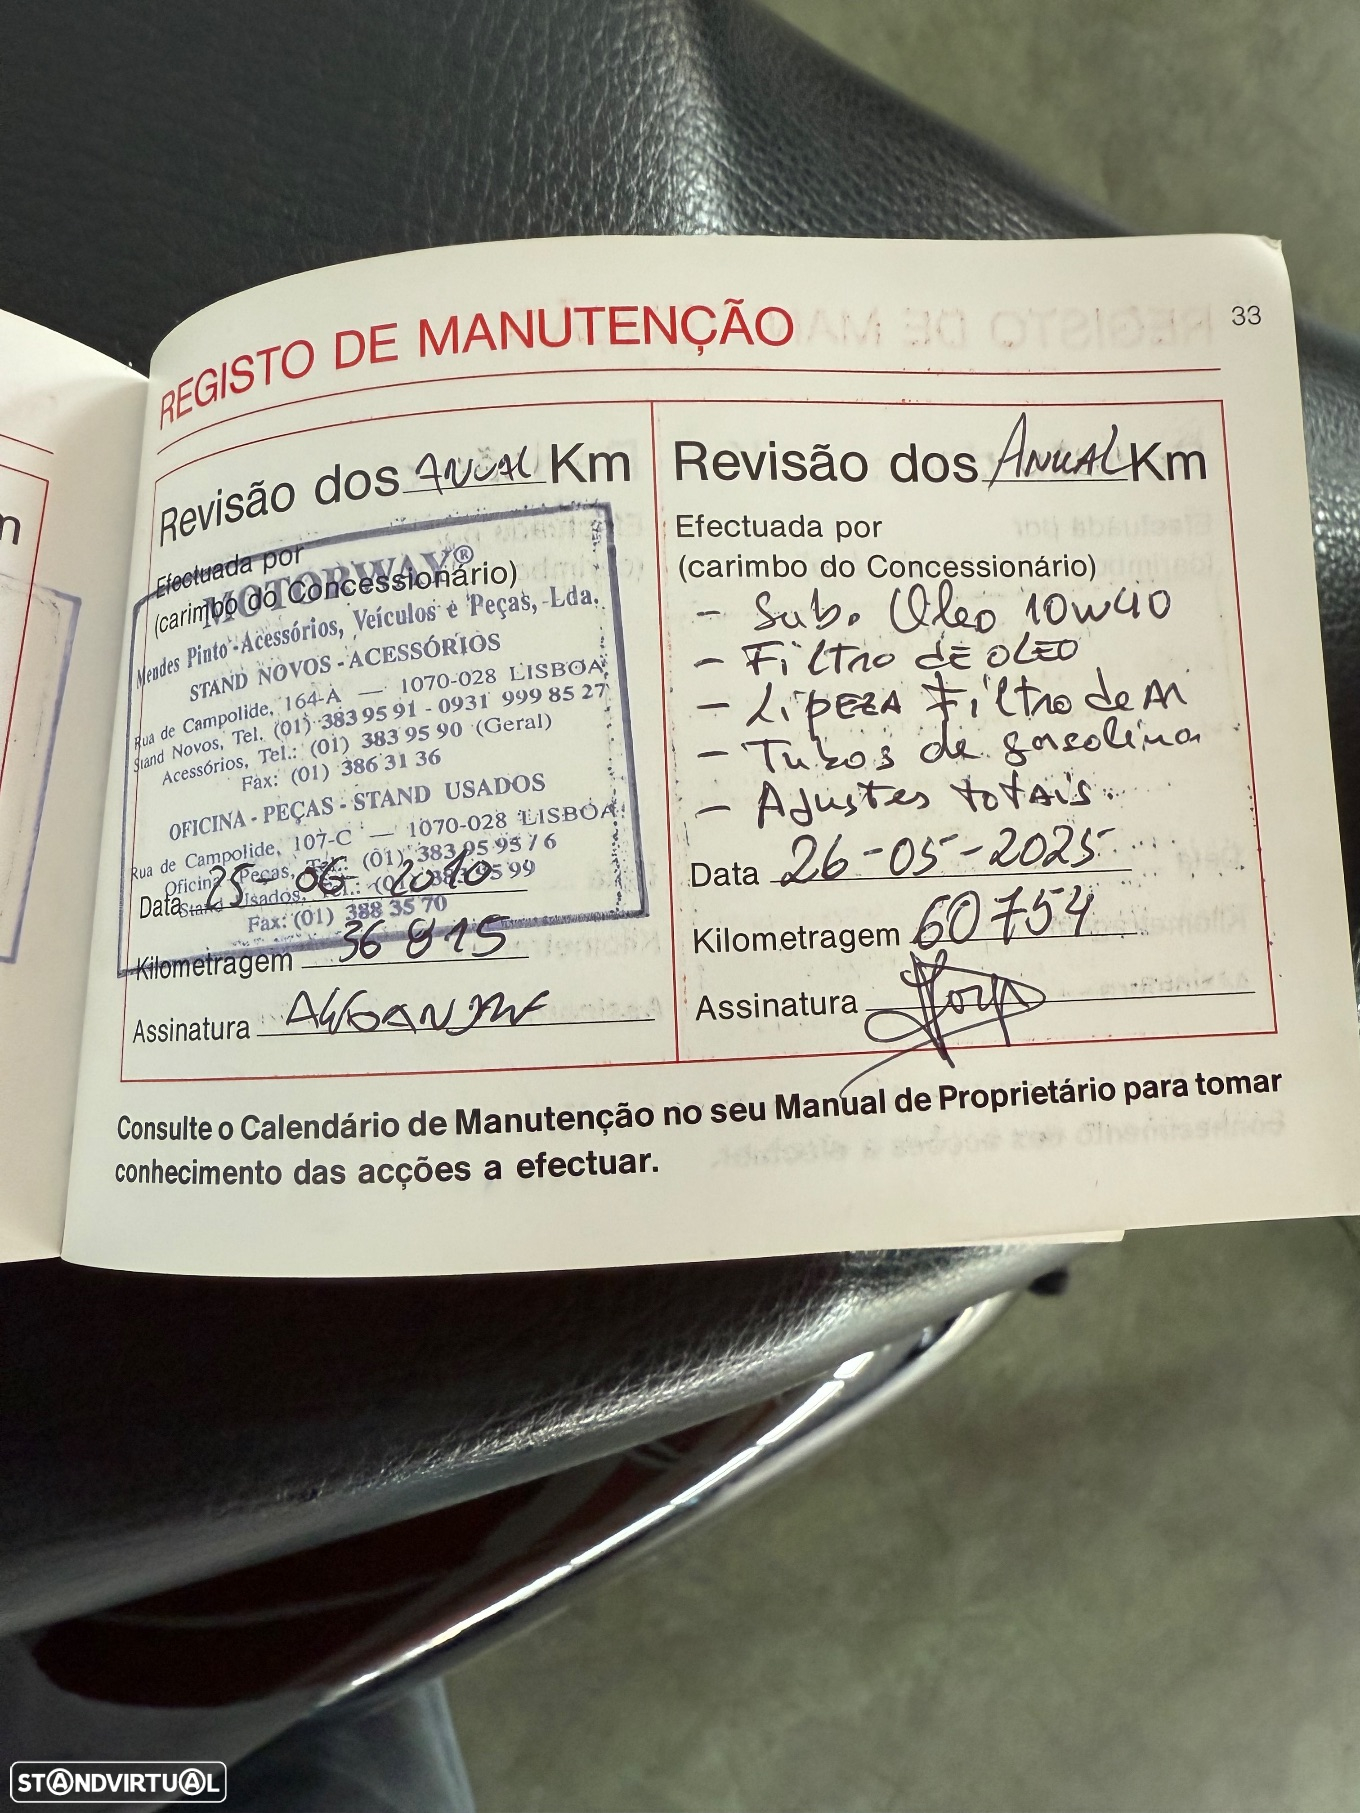 33
REGISTO DE MANUTENÇÃO
Revisão dos ANUAL Km
Efectuada por
(carimbo do Concessionário)
MOTORWAY®
Mendes Pinto-Acessórios, Veículos e Peças, Lda.
STAND NOVOS - ACESSÓRIOS
Rua de Campolide, 164-A — 1070-028 LISBOA
Stand Novos, Tel. (01) 383 95 91 - 0931 999 85 27
Acessórios, Tel.: (01) 383 95 90 (Geral)
Fax: (01) 386 31 36
OFICINA - PEÇAS - STAND USADOS
Rua de Campolide, 107-C — 1070-028 LISBOA
Oficina Peças, (01) 383 95 95 / 6
Stand Usados, Tel.: (01) 383 95 99
Fax: (01) 388 35 70
Data 25-06-2010
Kilometragem 36815
Assinatura
Revisão dos ANUAL Km
Efectuada por
(carimbo do Concessionário)
- Sub. Oleo 10W40
- Filtro de OLEO
- Lipeza Filtro de Ar
- Tubos de gasolina
- Ajustes totais.
Data 26-05-2025
Kilometragem 60754
Assinatura
Consulte o Calendário de Manutenção no seu Manual de Proprietário para tomar
conhecimento das acções a efectuar.
STANDVIRTUAL